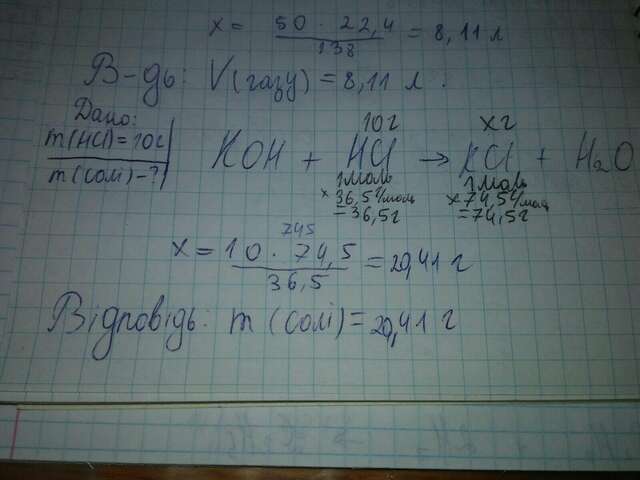 x = 50 · 22,4 / 138 = 8,11 л
В-дь: V(газу) = 8,11 л.
Дано:
m(HCl)=10г
m(солі)-?
10г xг
KOH + HCl → KCl + H2O
1моль 1моль
x 36,5г/моль x 74,5г/моль
=36,5г =74,5г
745
x = 10 · 74,5 / 36,5 = 20,41 г
Відповідь: m (солі) = 20,41 г